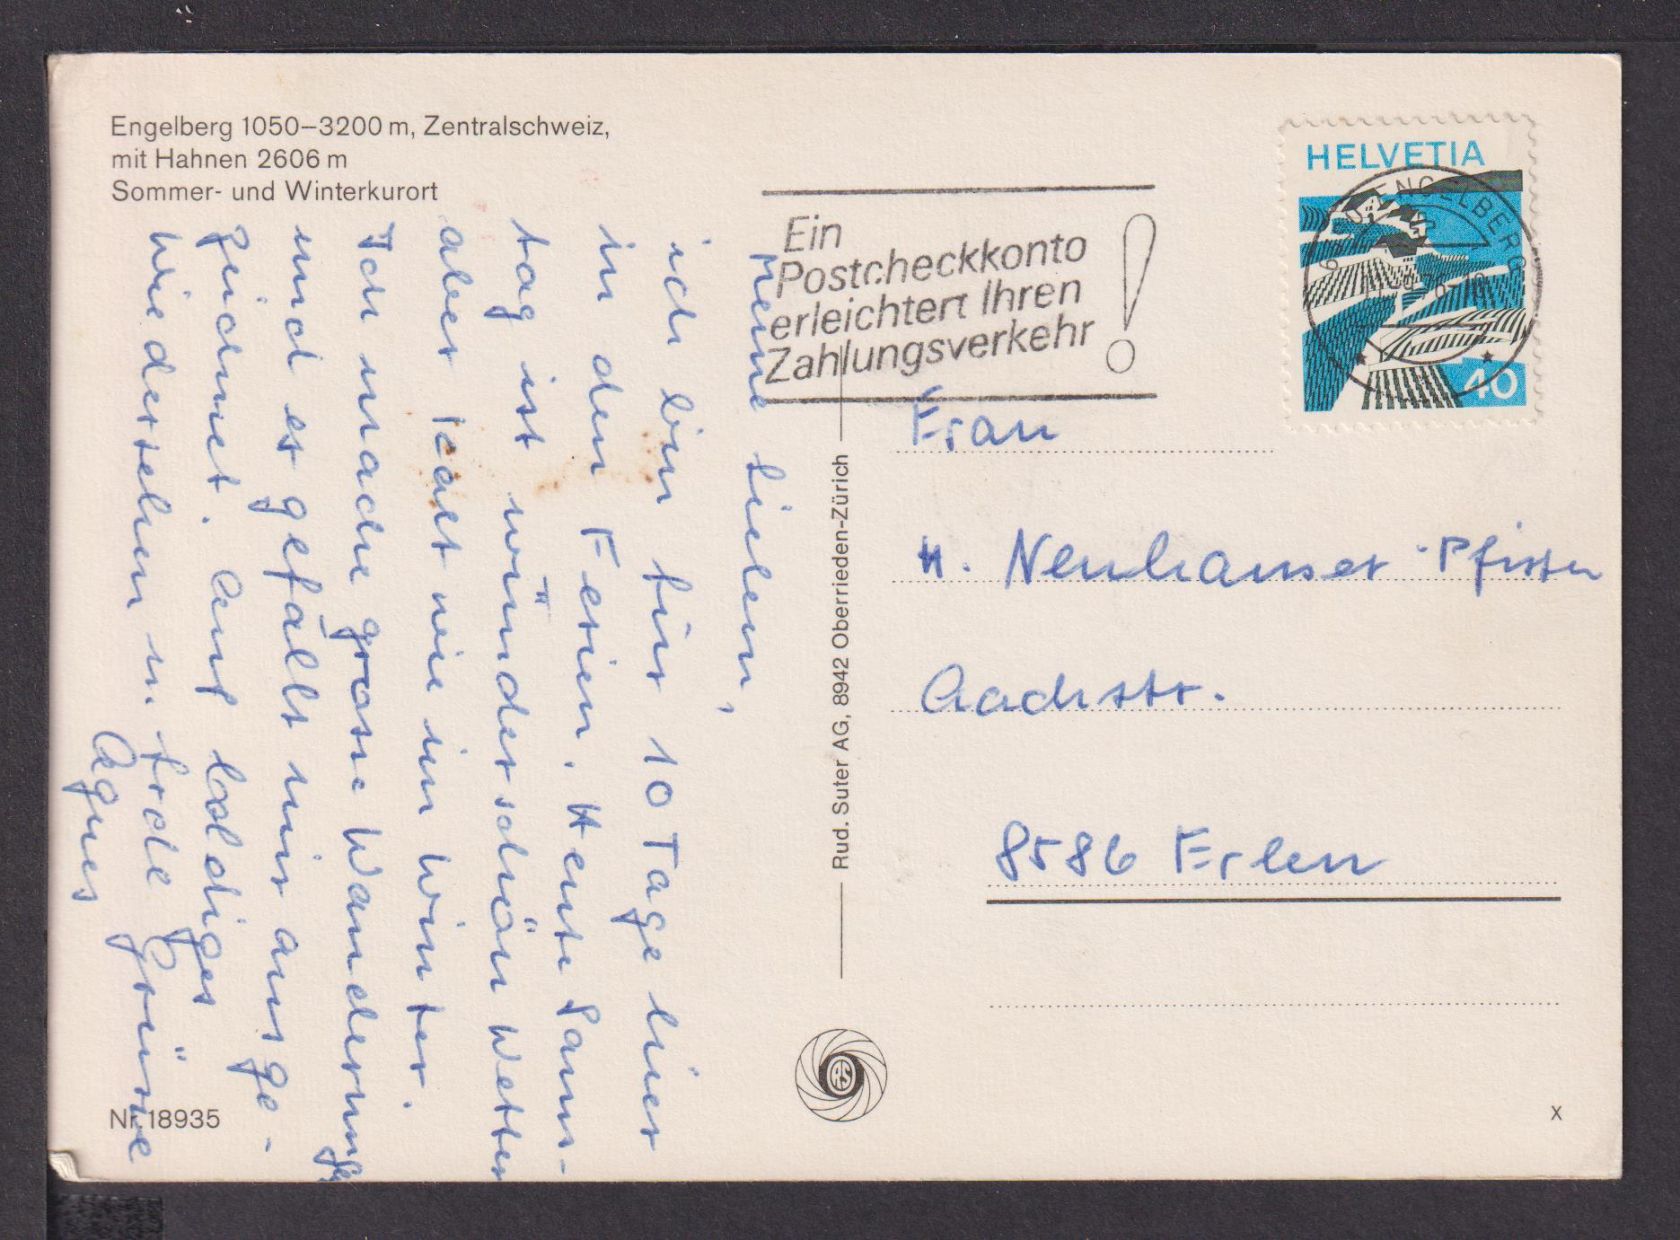 Engelberg 1050–3200 m, Zentralschweiz,
mit Hahnen 2606 m
Sommer- und Winterkurort
Meine Lieben,
ich bin für 10 Tage hier
in den Ferien. Heute Sams-
tag ist wunderschön Wetter
aber kalt wie im Winter.
Ich mache grosse Wanderung
und es gefällt mir ausge-
zeichnet. Auf baldiges
Wiedersehen u. frohe Grüsse
Agnes
Nr. 18935
Rud. Suter AG, 8942 Oberrieden-Zürich
RS
Ein
Postcheckkonto
erleichtert Ihren
Zahlungsverkehr
!
HELVETIA
40
ENGELBERG
Frau
H. Neuhauser-Pfister
Aachstr.
8586 Erlen
X